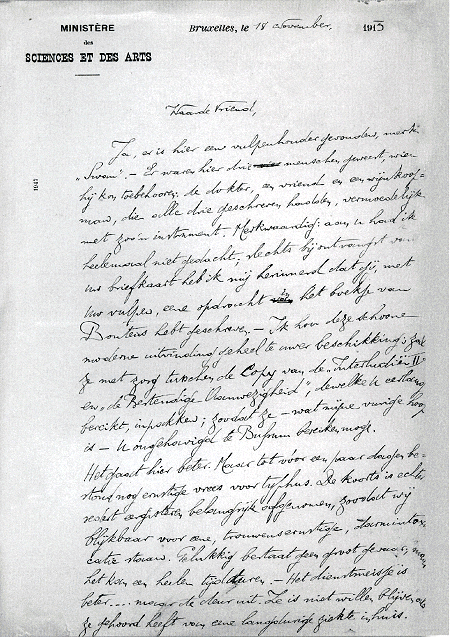 MINISTÈRE
des
SCIENCES ET DES ARTS
Bruxelles, le 18 November, 1913
1947
Waarde Vriend,
Ja, er is hier een vulpenhouder gevonden, merk:
„Swan". – Er waren hier drie menschen geweest, wien
hij kon toebehooren: de dokter, een vriend en een wijnkoop=
man, die alle drie geschreven hadden, vermoedelijk
met zoo'n instrument. Merkwaardig: aan u had ik
heelemaal niet gedacht, slechts bij ontvangst van
uw briefkaart heb ik mij herinnerd dat gij, met
uw vulpen, eene opdracht in het boekje van
Boutens hebt geschreven. – Ik hou deze schoone
moderne uitvinding geheel te uwer beschikking: zal
ze met zorg tusschen de Copy van de „Interludiën II"
en „de Bestendige Aanwezigheid", dewelke u eerlang
bereikt, inpakken; zoodat ze – wat mijne vurige hoop
is – u ongehavend te Bussum bereiken moge.
Het gaat hier beter. Maar tot vóor een paar dagen be-
stond nog ernstige vrees voor typhus. De koorts is echter
sedert eergisteren belangrijk afgenomen, zoodat wij
blijkbaar voor eene, trouwens ernstige, darmintoxi-
catie staan. Gelukkig bestaat geen groot gevaar, maar
het kan een heelen tijd duren. – Het dienstmeisje is
beter.... maar de deur uit. Ze is niet willen blijven, als
ze gehoord heeft van eene langdurige ziekte in huis.